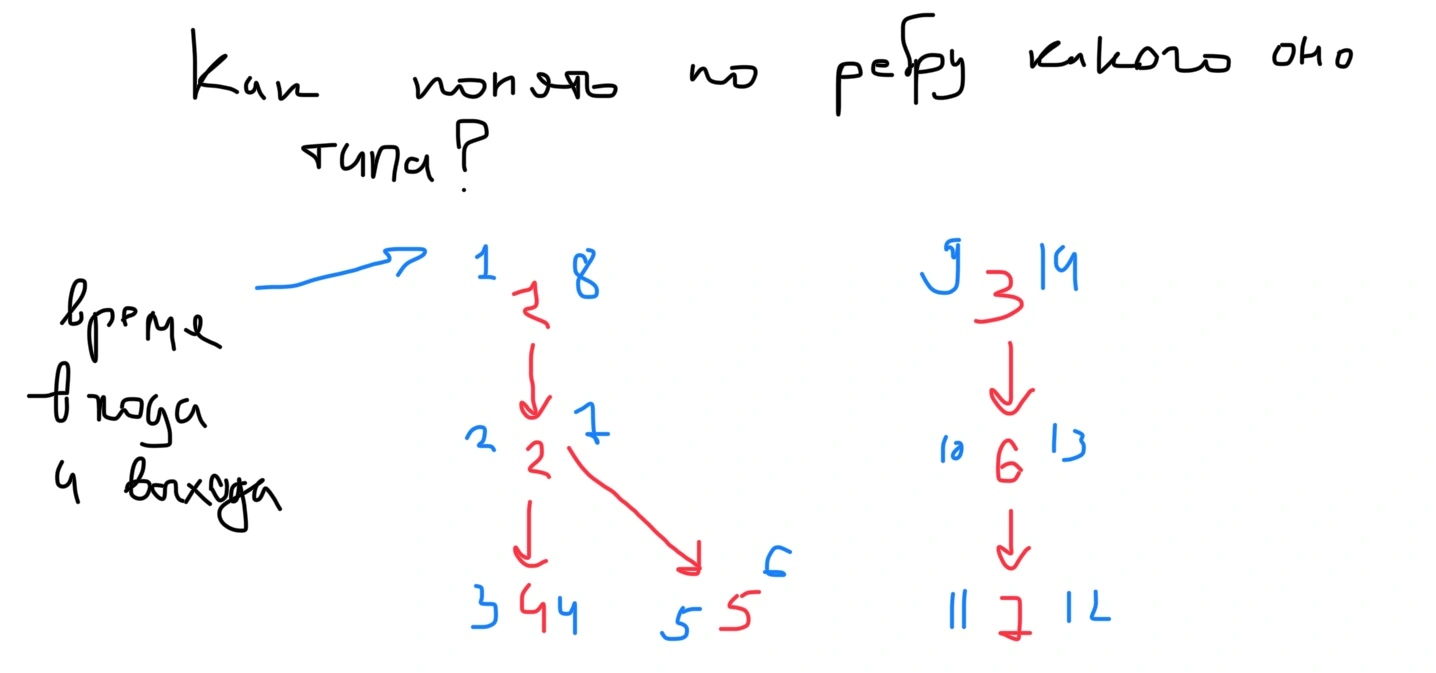 Как понять по ребру какого оно
типа?
время
входа
и выхода
1 1 8
2 2 7
3 4 4
5 5 6
9 3 14
10 6 13
11 7 12